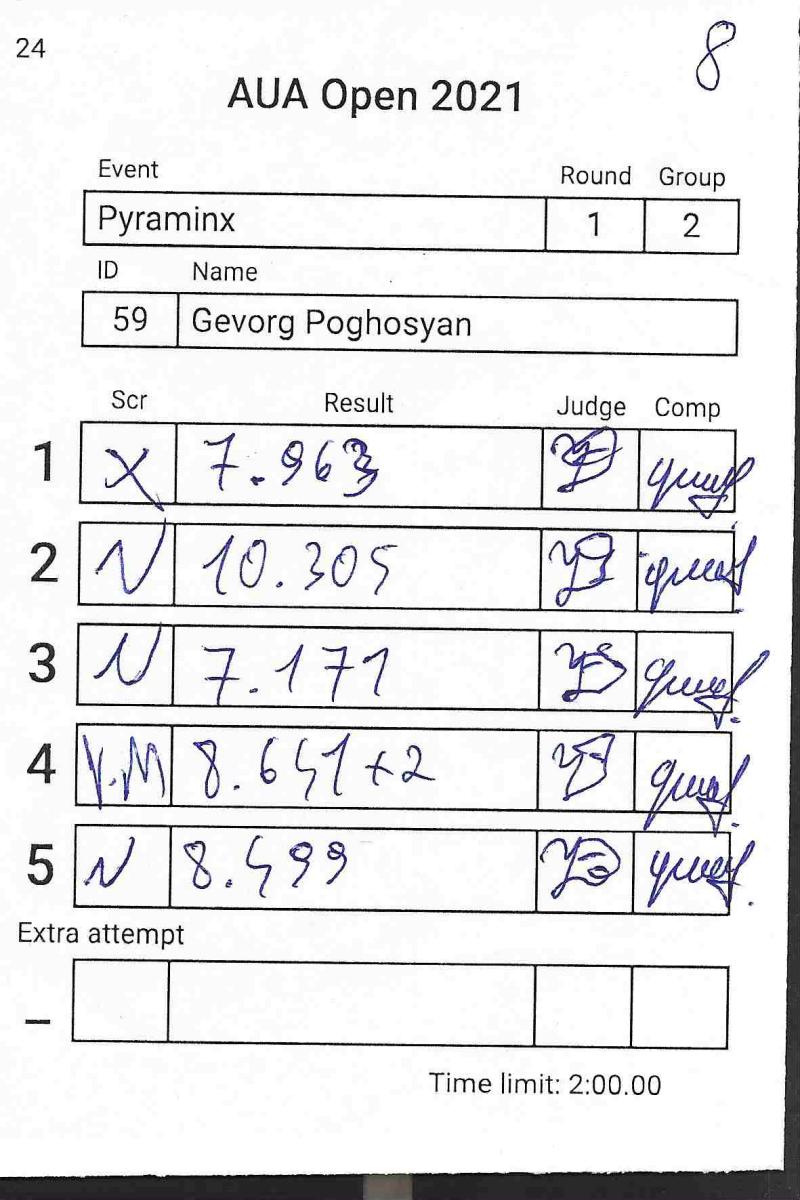 24
8
AUA Open 2021
Event Round Group
Pyraminx 1 2
ID Name
59 Gevorg Poghosyan
Scr Result Judge Comp
1 X 7.963
2 N 10.305
3 N 7.171
4 Y.M 8.651+2
5 N 8.599
Extra attempt
_
Time limit: 2:00.00